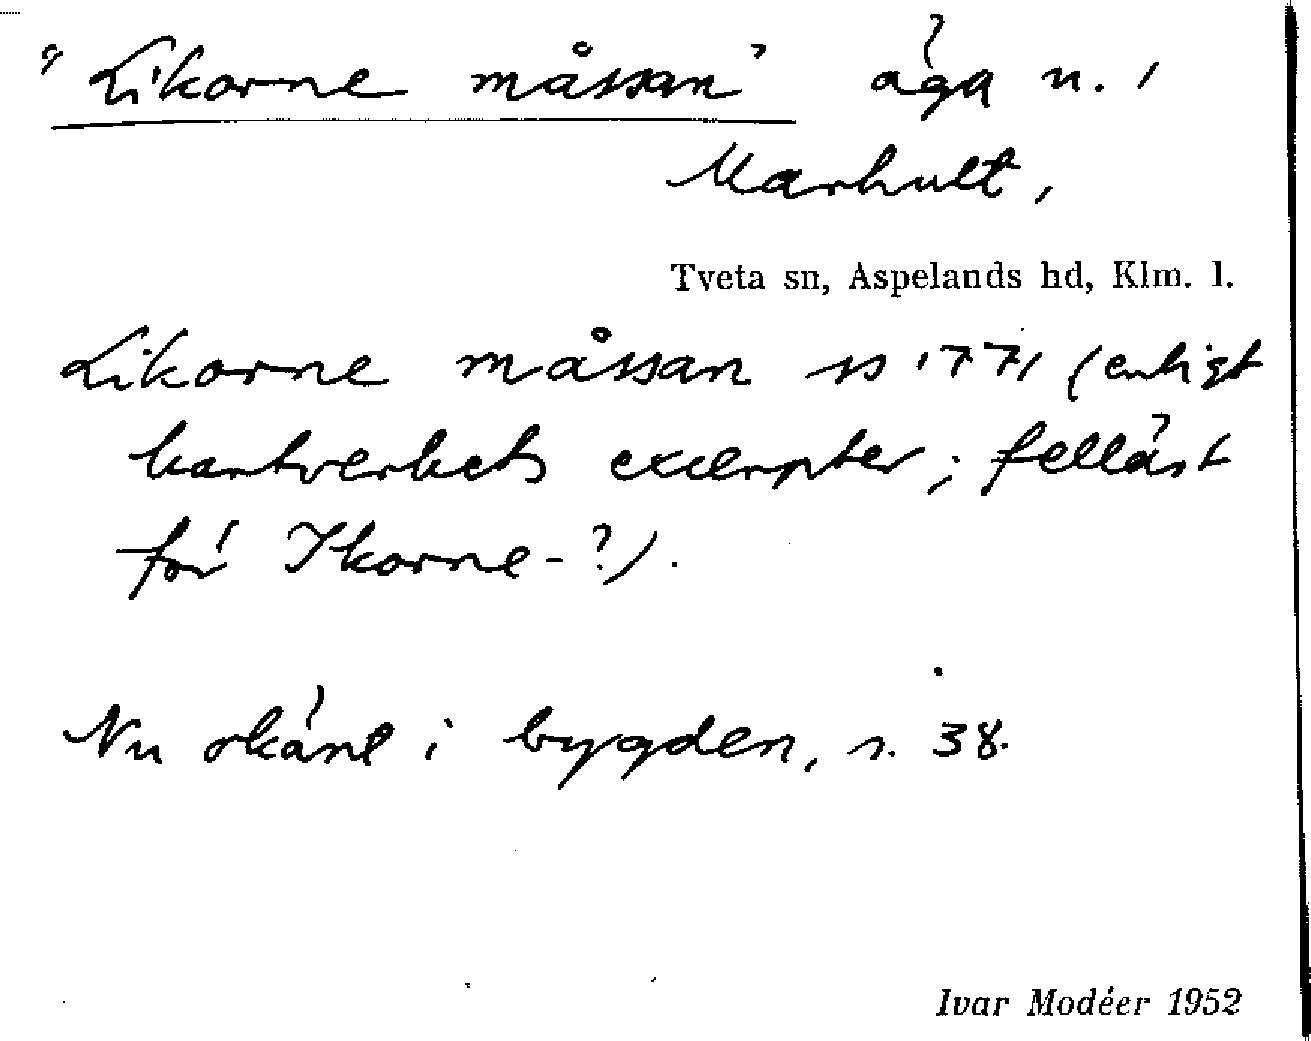 "Likorne måssan" äga n. 1
Marhult,
Tveta sn, Aspelands hd, Klm. l.
Likorne måssan ss 1771 (enligt
kartverkets excerpter; felläst
för Ikorne-?).
Nu okänt i bygden, s. 38.
Ivar Modéer 1952